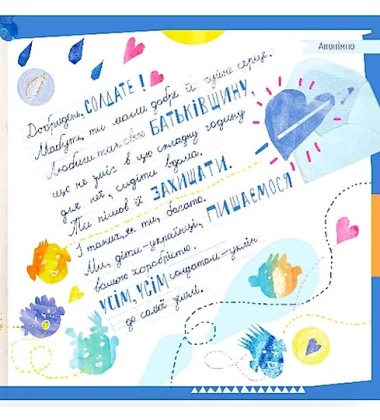 Анонімно
Добридень, СОЛДАТЕ!
Мабуть, ти маєш добре й чуйне серце.
Любиш так свою БАТЬКІВЩИНУ,
що не зміг в цю складну годину
для неї, сидіти вдома.
Ти пішов її ЗАХИЩАТИ.
І таких, як ти, багато.
Ми, діти-українці, ПИШАЄМОСЯ
вашою хоробрістю.
УСІМ, УСІМ солдатам – уклін
до самої землі.